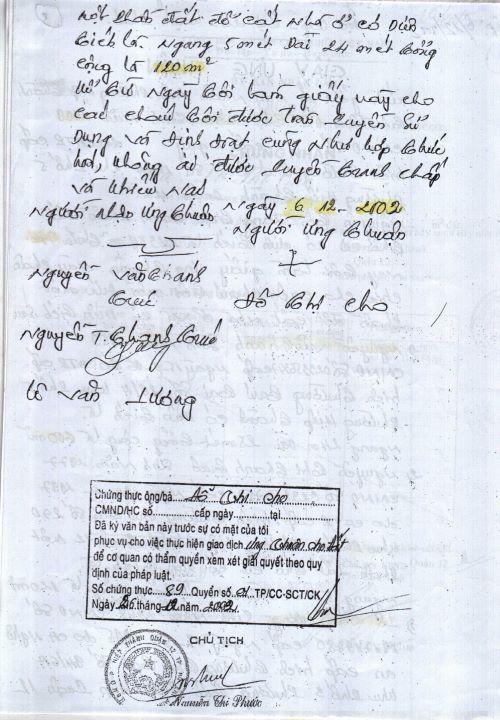 một phần đất để cất nhà ở có diện
tích là. Ngang 5 mét Dài 24 mét tổng
cộng là 120 m²
Kể từ ngày tôi làm giấy này cho
các cháu tôi được toàn quyền sử
dụng và định đoạt cũng như hợp thức
hoá, không ai được quyền tranh chấp
và khiếu nại
Ngày 6 12 - 2002
Người nhận ưng thuận
Người ưng thuận
Nguyễn Văn Thanh
Đỗ Thị Cho
Nguyễn T. Thanh
Văn Lương
Chứng thực ông/bà Đỗ Thị Cho
CMND/HC số cấp ngày tại
Đã ký văn bản này trước sự có mặt của tôi
phục vụ cho việc thực hiện giao dịch ưng thuận cho đất
để cơ quan có thẩm quyền xem xét giải quyết theo quy
định của pháp luật.
Số chứng thực 89 Quyển số 01 TP/CC-SCT/CK
Ngày 26 tháng 12 năm 2002
CHỦ TỊCH
Nguyễn Thị Phước